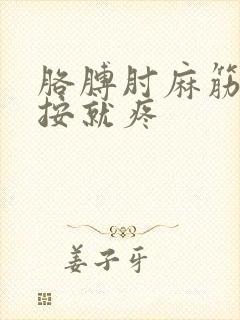 胳膊肘麻筋
按就疼
姜子牙